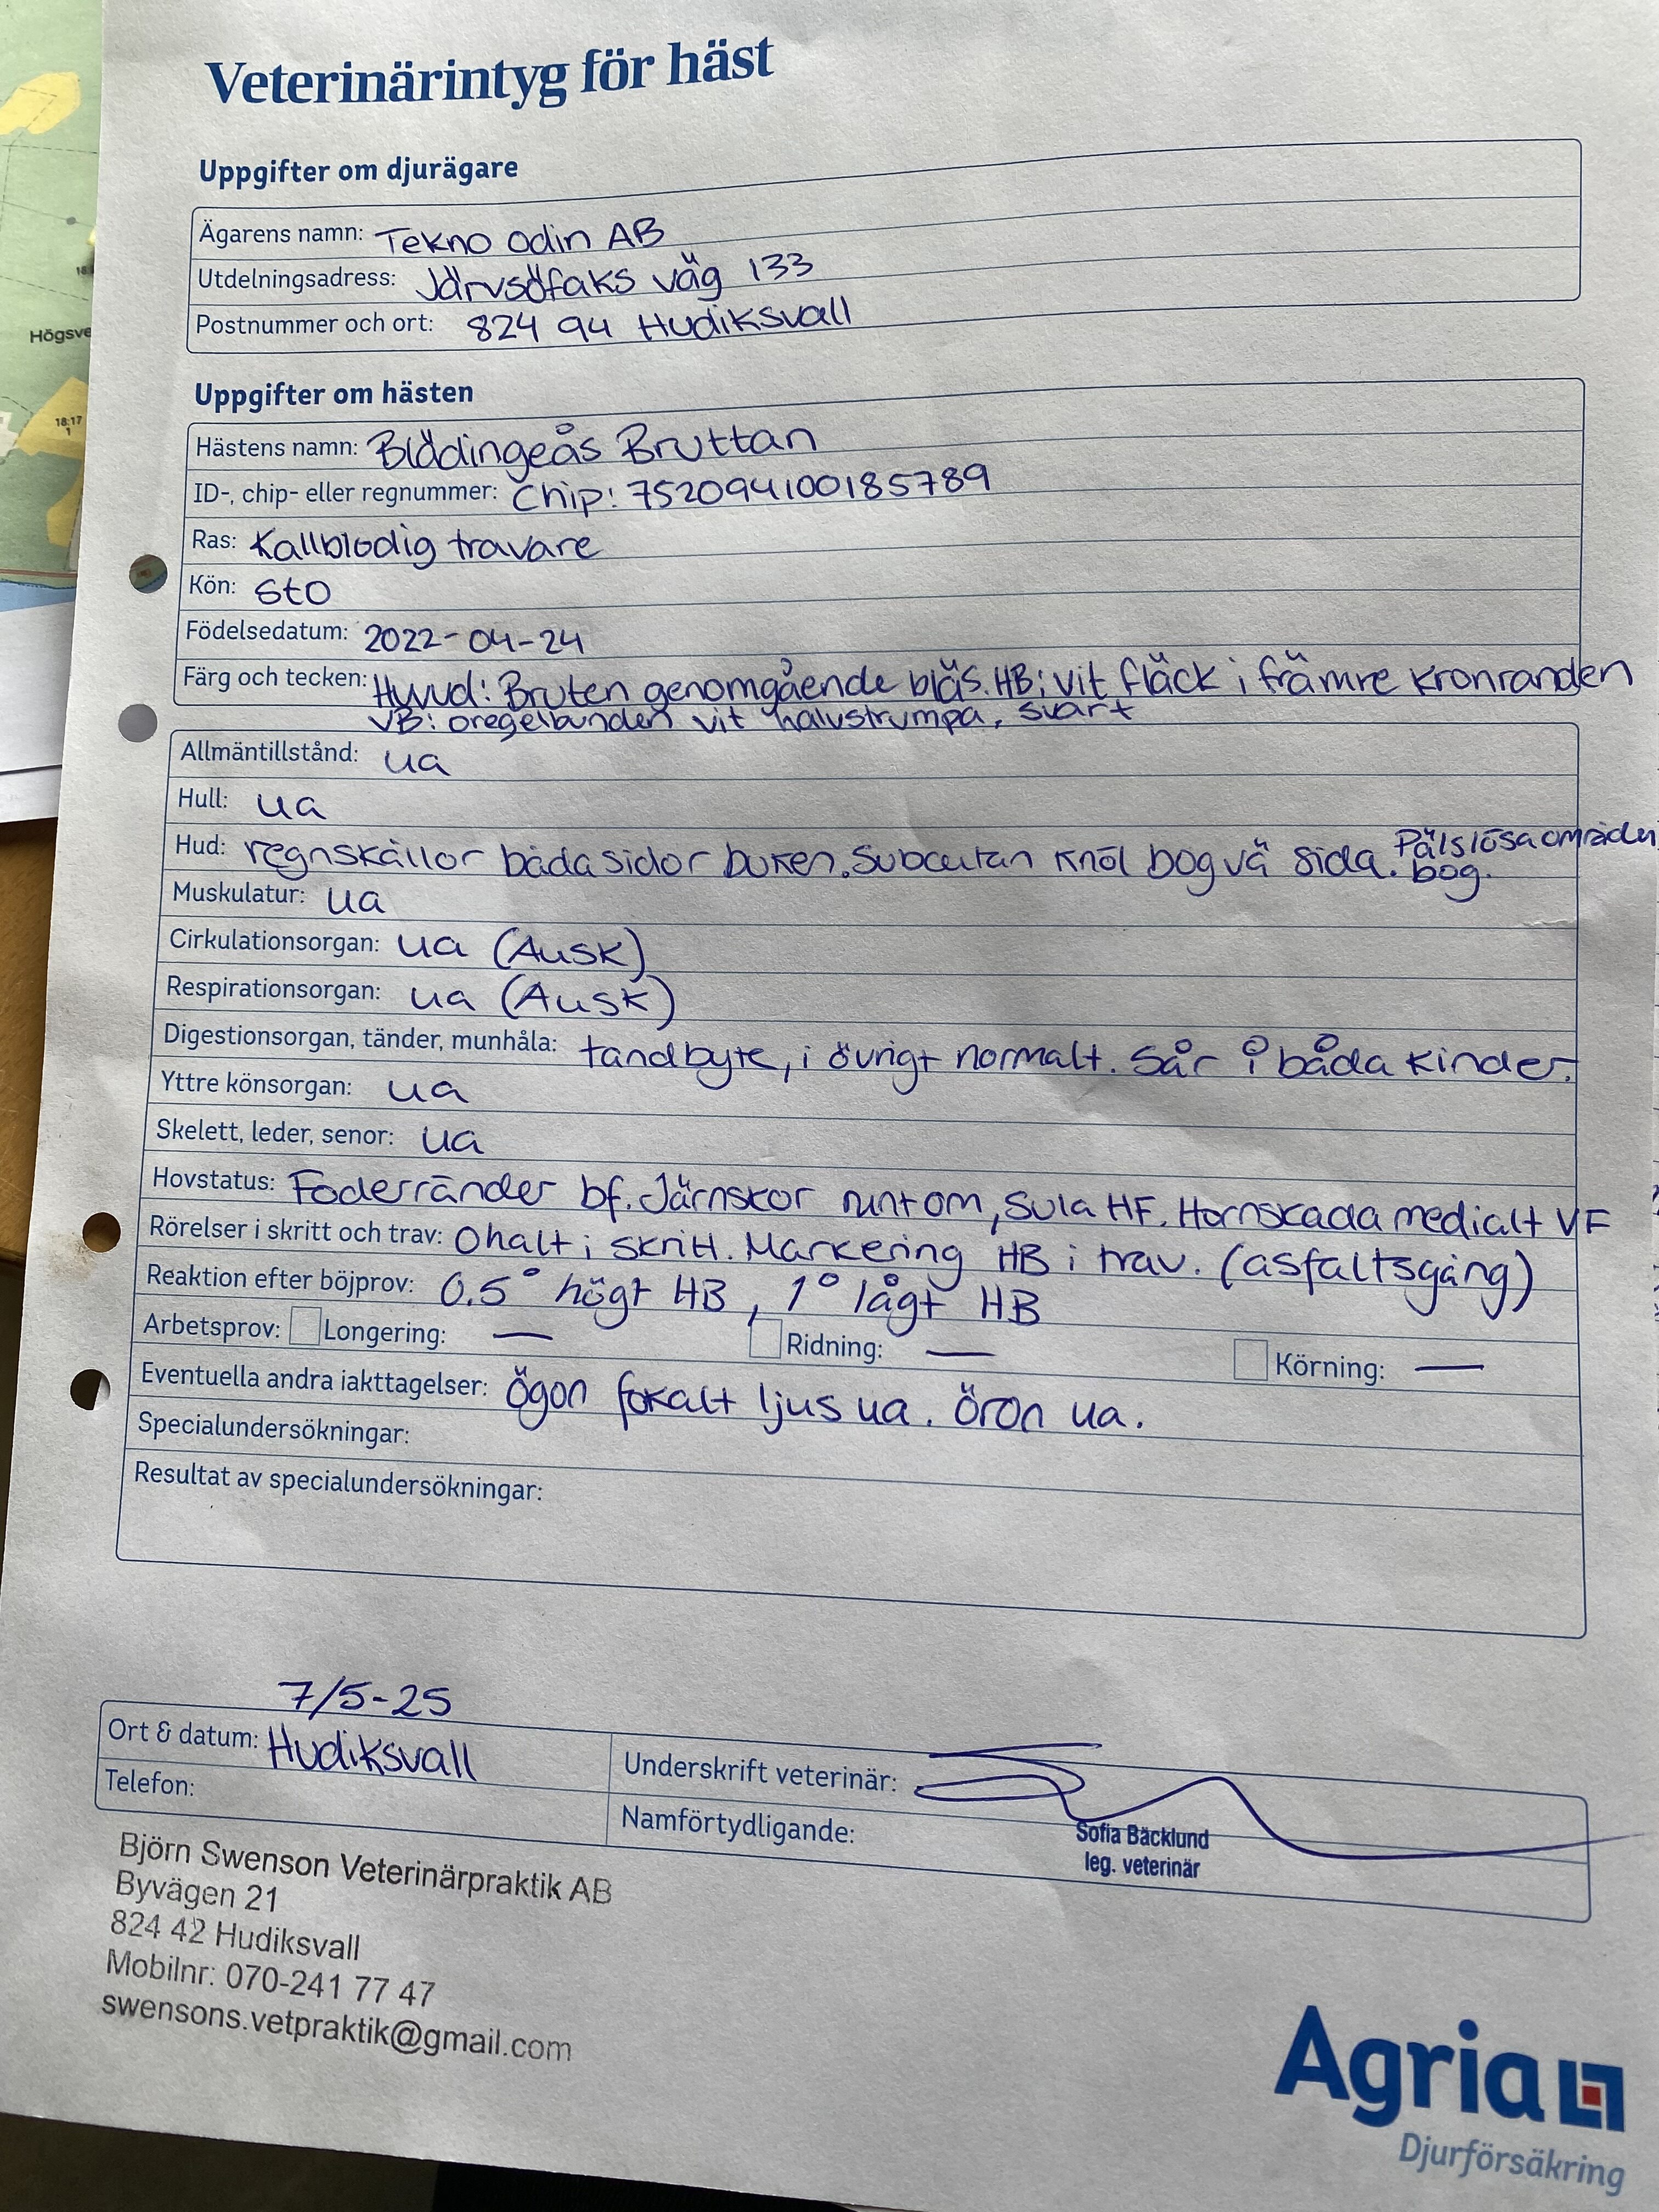 Veterinärintyg för häst
Uppgifter om djurägare
Ägarens namn: Tekno Odin AB
Utdelningsadress: Järvsöfaks väg 133
Postnummer och ort: 824 94 Hudiksvall
Uppgifter om hästen
Hästens namn: Blädingeås Bruttan
ID-, chip- eller regnummer: Chip: 752094100185789
Ras: Kallblodig travare
Kön: Sto
Födelsedatum: 2022-04-24
Färg och tecken: Huvud: Bruten genomgående bläs. HB: vit fläck i främre kronranden
VB: oregelbunden vit halvstrumpa, svart
Allmäntillstånd: ua
Hull: ua
Hud: regnskållor båda sidor buken. Subcutan knöl bog vä sida. Pälslösa områden
bog.
Muskulatur: ua
Cirkulationsorgan: ua (Ausk)
Respirationsorgan: ua (Ausk)
Digestionsorgan, tänder, munhåla: tandbyte, i övrigt normalt. Sår i båda kinder.
Yttre könsorgan: ua
Skelett, leder, senor: ua
Hovstatus: Foderränder bf. Järnskor runt om, sula HF. Hornskada medialt VF
Rörelser i skritt och trav: Ohalt i skritt. Markering HB i trav. (asfaltsgång)
Reaktion efter böjprov: 0.5° högt HB, 1° lågt HB
Arbetsprov: Longering: — Ridning: — Körning: —
Eventuella andra iakttagelser: Ögon fokalt ljus ua. Öron ua.
Specialundersökningar:
Resultat av specialundersökningar:
7/5-25
Ort & datum: Hudiksvall
Underskrift veterinär:
Telefon:
Namförtydligande:
Sofia Bäcklund
leg. veterinär
Björn Swenson Veterinärpraktik AB
Byvägen 21
824 42 Hudiksvall
Mobilnr: 070-241 77 47
swensons.vetpraktik@gmail.com
Agria
Djurförsäkring
Högsve
18:17